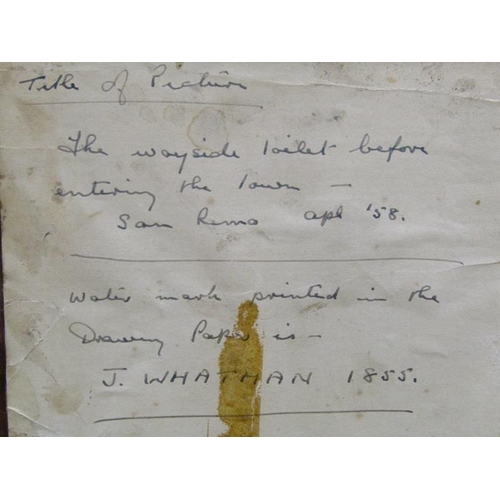 Title of Picture
The wayside toilet before
entering the town –
San Remo apl '58.
Water mark printed in the
Drawing Paper is –
J. WHATMAN 1855.